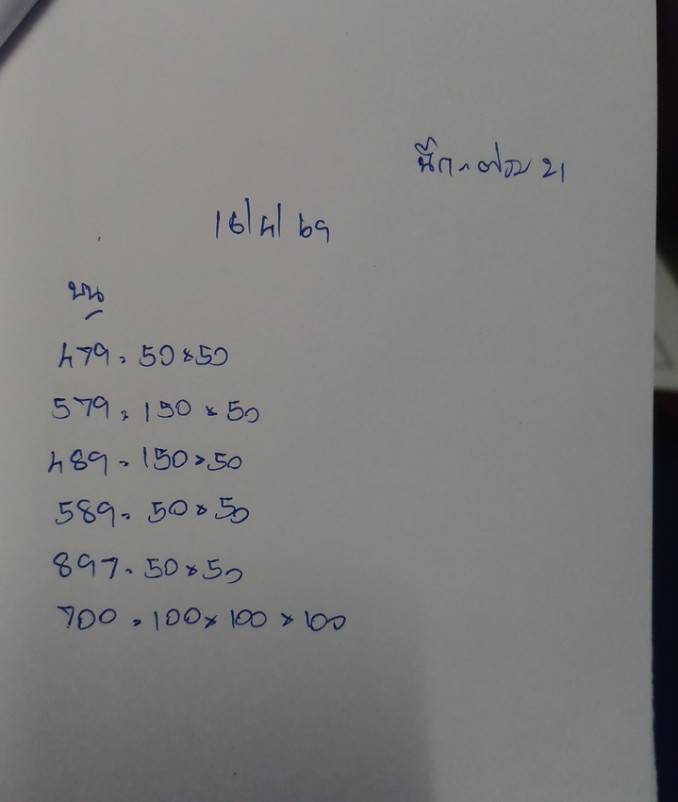 นิ๊ก 21
16/4/69
บน
479 = 50×50
579 = 150×50
489 = 150×50
589 = 50×50
897 = 50×50
700 = 100×100×100